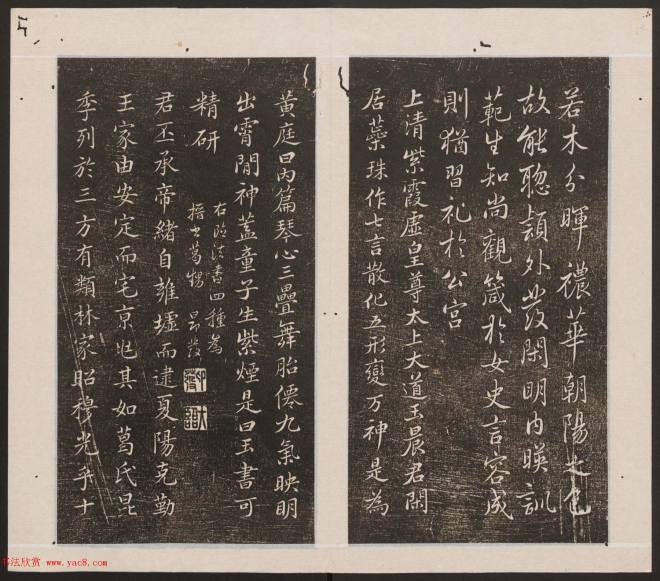 若木分暉禯華朝陽之色
故能聰穎外發閑明内暎訓
範生知尚觀箴於女史言容成
則猶習礼於公宫
上清紫霞虛皇尊太上大道玉晨君閑
居蘂珠作七言散化五形變万神是為
黄庭曰内篇琴心三疊舞胎僊九氣映明
出霄閒神蓋童子生紫煙是曰玉書可
精研
右臨法書四種為
君丕承帝緒自雒墟而逮夏陽克勤
王家由安定而宅京兆其如葛氏昆
季列於三方有類林家昭穆光乎十
书法欣赏 www.yac8.com